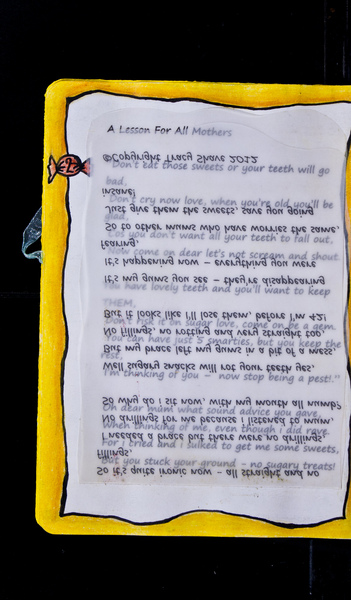 A Lesson For All Mothers
"Don't eat those sweets or your teeth will go
bad,
Don't cry now love, when you're old you'll be
glad,
Cos you don't want all your teeth to fall out,
Now come on dear let's not scream and shout.
You have lovely teeth and you'll want to keep
THEM,
Don't risk it on sugar love, come on be a gem.
You can have just 5 smarties, but you keep the
rest,
I'm thinking of you – now stop being a pest!.."
Oh dear mam what sound advice you gave,
When thinking of me, even though i did rave.
For i tried and i sulked to get me some sweets,
But you stuck your ground – no sugary treats!
So it's quite ironic now – all straight and no
fillings,
I needed a brace but there were no drillings
No drillings for me because I listened to mum,
So why do i sit now, with my mouth all numb?
Well sugary snacks will rot your teeth yes,
But my brace left my gums in a bit of a mess,
No fillings, no rotting and very straight too,
But it looks like I'll lose them, before I'm 42!
It's my gums you see – they're disappearing
It's happening now – everything you were
fearing,
So to other mums who have worries the same,
Just give them the sweets, save you going
insane!
©Copyright Tracy Shave 2012